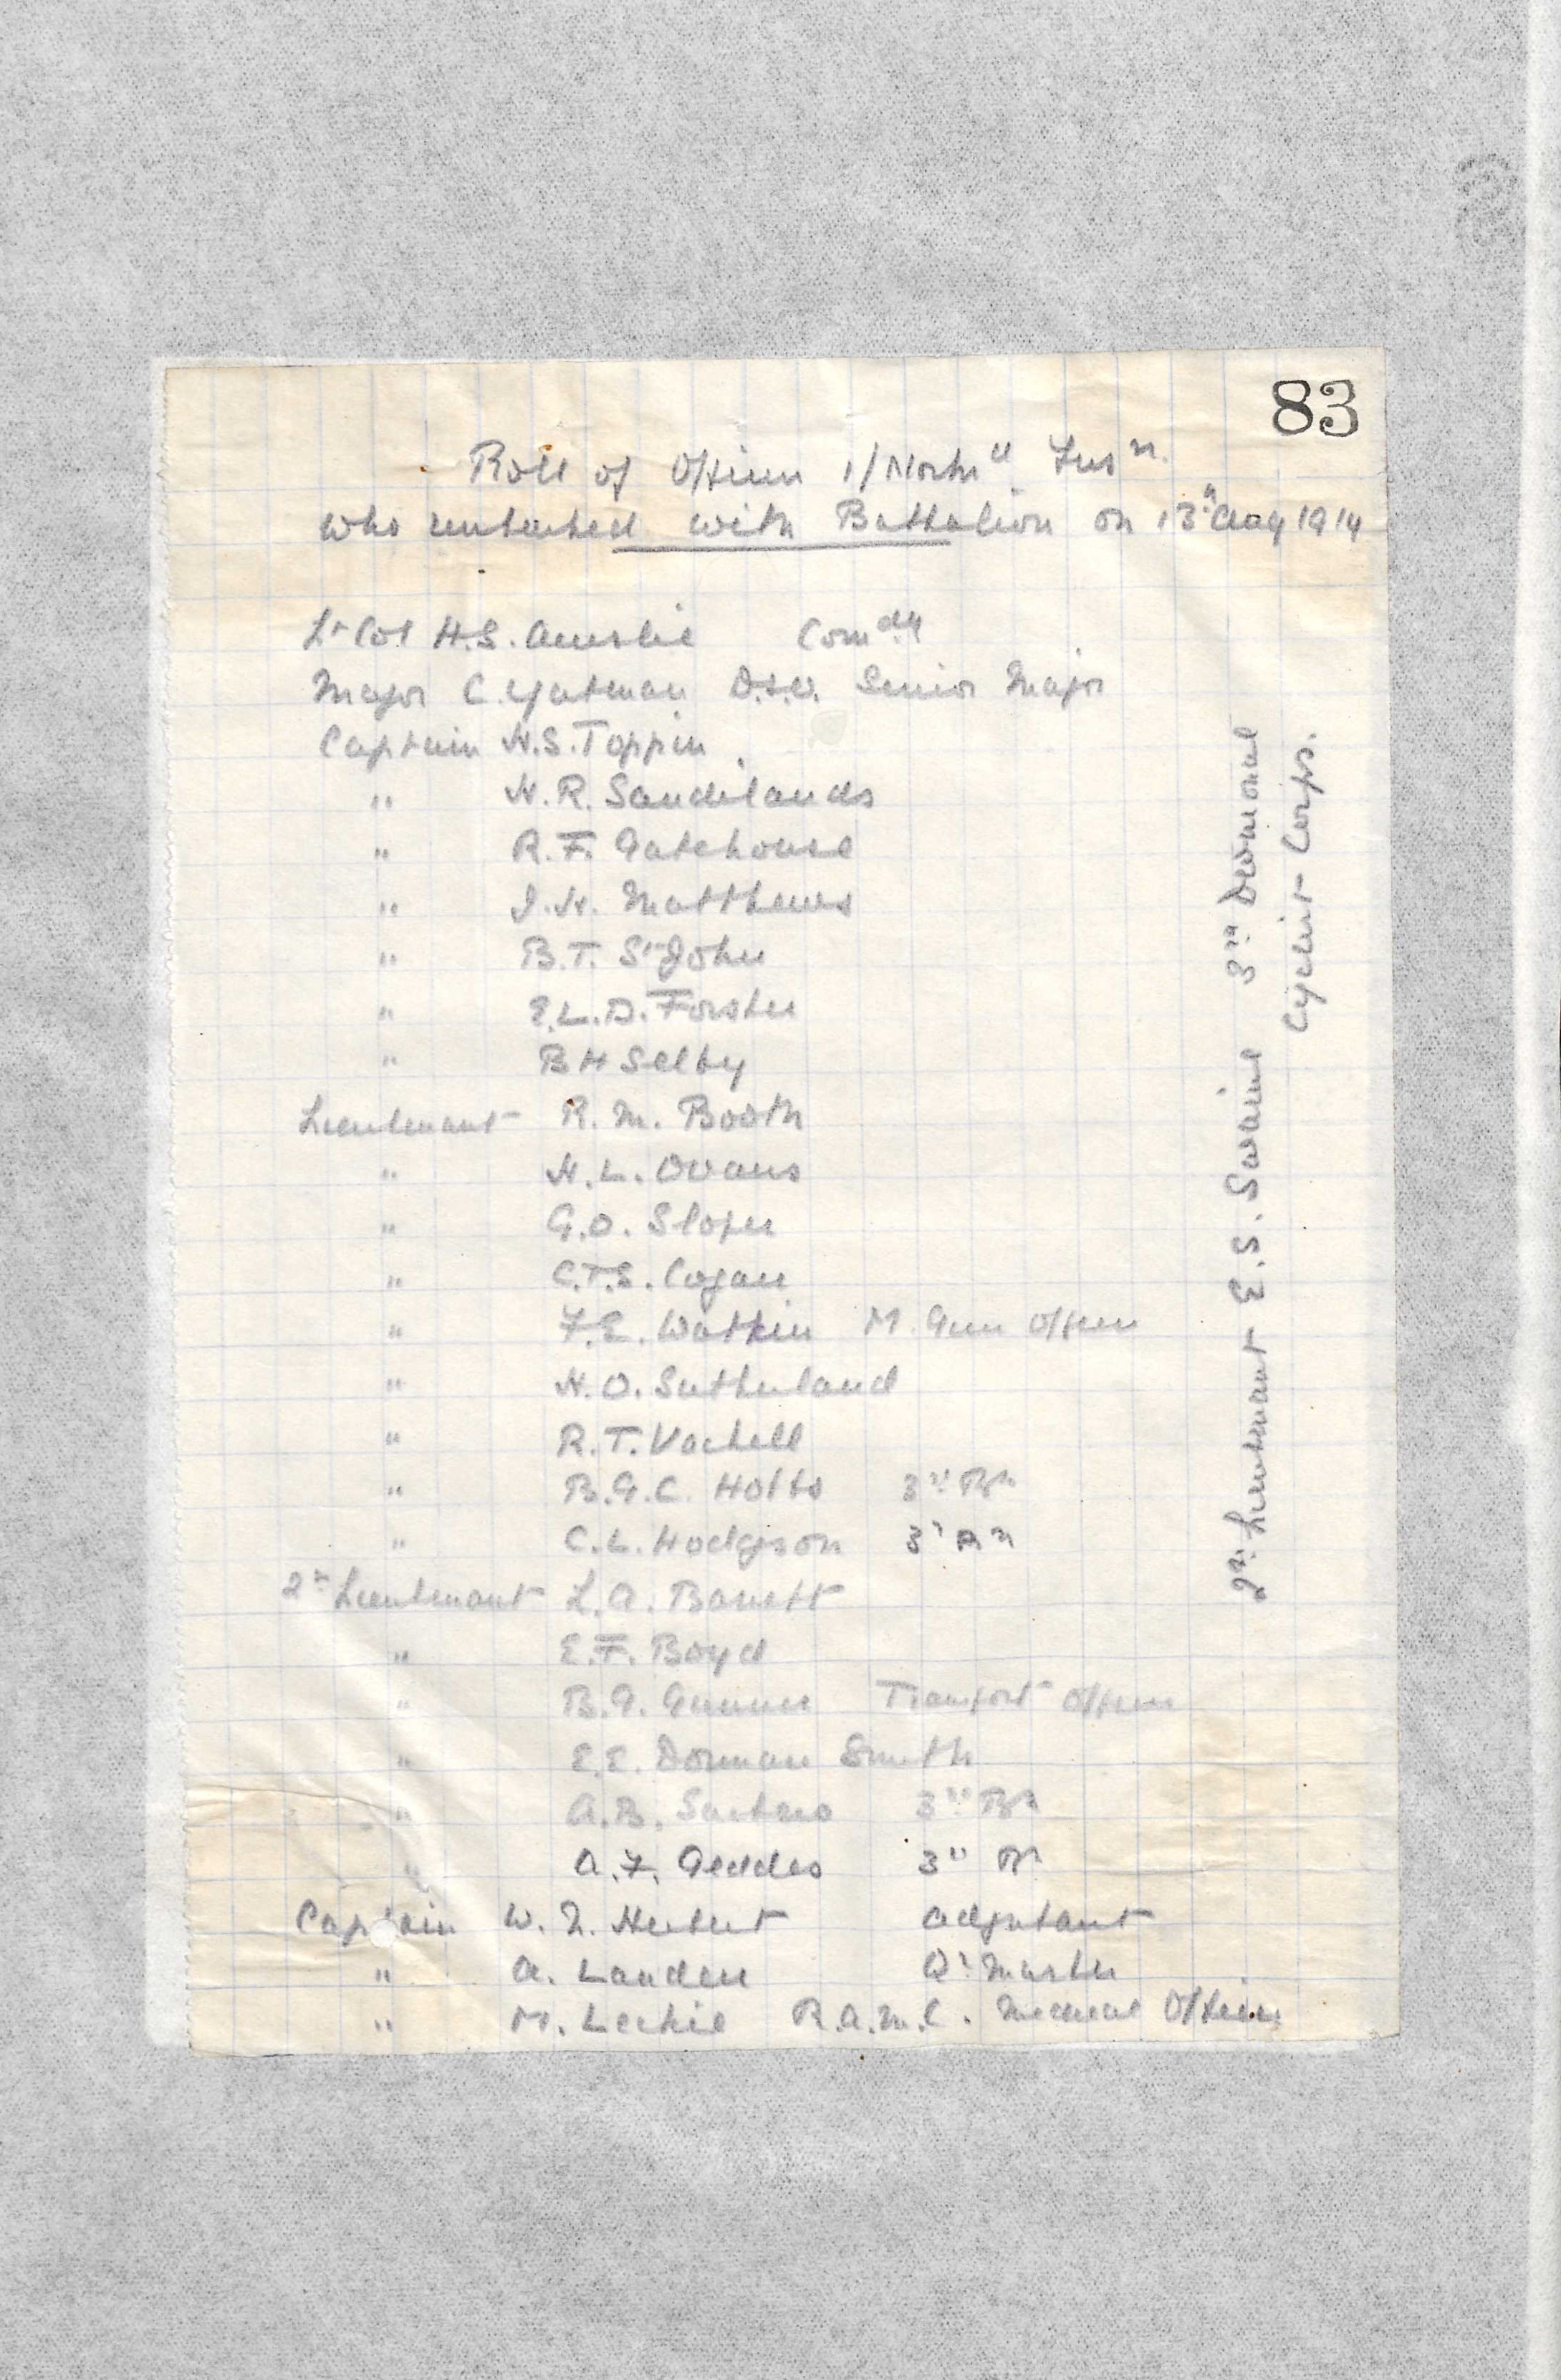 83
Roll of Officers 1/North'd Fus'rs.
who embarked with Battalion on 13th Aug 1914
Lt Col H.S. Ainslie Comdg
Major C. Yatman D.S.O. Senior Major
Captain H.S. Toppin
" H.R. Sandilands
" R.F. Gatehouse
" J.H. Matthews
" B.T. St John
" E.L.D. Forster
" B H Selby
Lieutenant R.M. Booth
" H.L. Ovans
" G.O. Sloper
" C.T.S. Cogan
" F.E. Watkin M. Gun Officer
" H.O. Sutherland
" R.T. Vachell
" B.G.C. Hobbs 3rd Bn
" C.L. Hodgson 3rd Bn
2nd Lieutenant L.A. Barrett
" E.F. Boyd
" B.G. Gunner Transport Officer
" E.E. Dorman Smith
" A.B. 3rd Bn
" A.F. Geddes 3rd Bn
Captain W.N. Herbert Adjutant
" A. Landen Qr Master
" M. Leckie R.A.M.C. Medical Officer
2nd Lieutenant E.S. 3rd Divisional
Cyclist Corps.